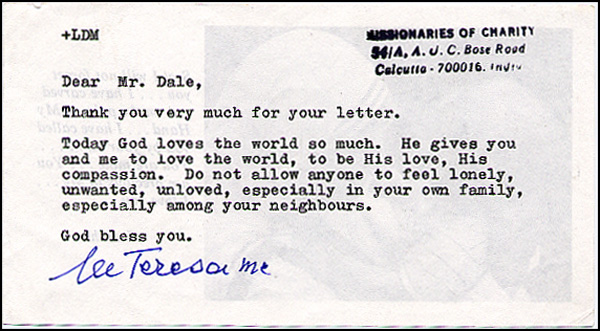 +LDM
MISSIONARIES OF CHARITY
54/A, A. J. C. Bose Road
Calcutta - 700016. India
Dear Mr. Dale,
Thank you very much for your letter.
Today God loves the world so much. He gives you
and me to love the world, to be His love, His
compassion. Do not allow anyone to feel lonely,
unwanted, unloved, especially in your own family,
especially among your neighbours.
God bless you.
lee Teresa mc